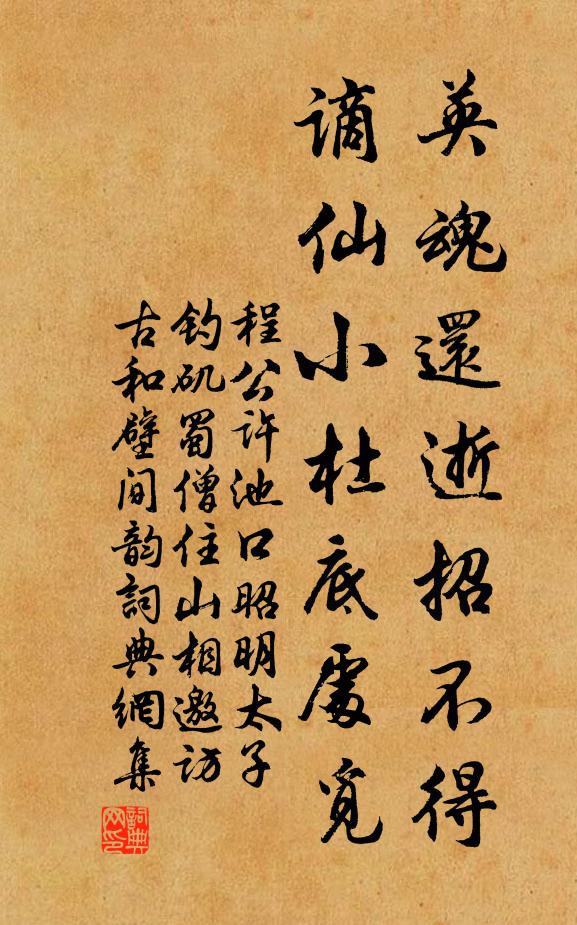 英魂還逝招不得
謫仙小杜底處覓
程公许池口昭明太子
钓矶蜀僧住山相邀访
古和壁间韵詞典網集
詞典网印